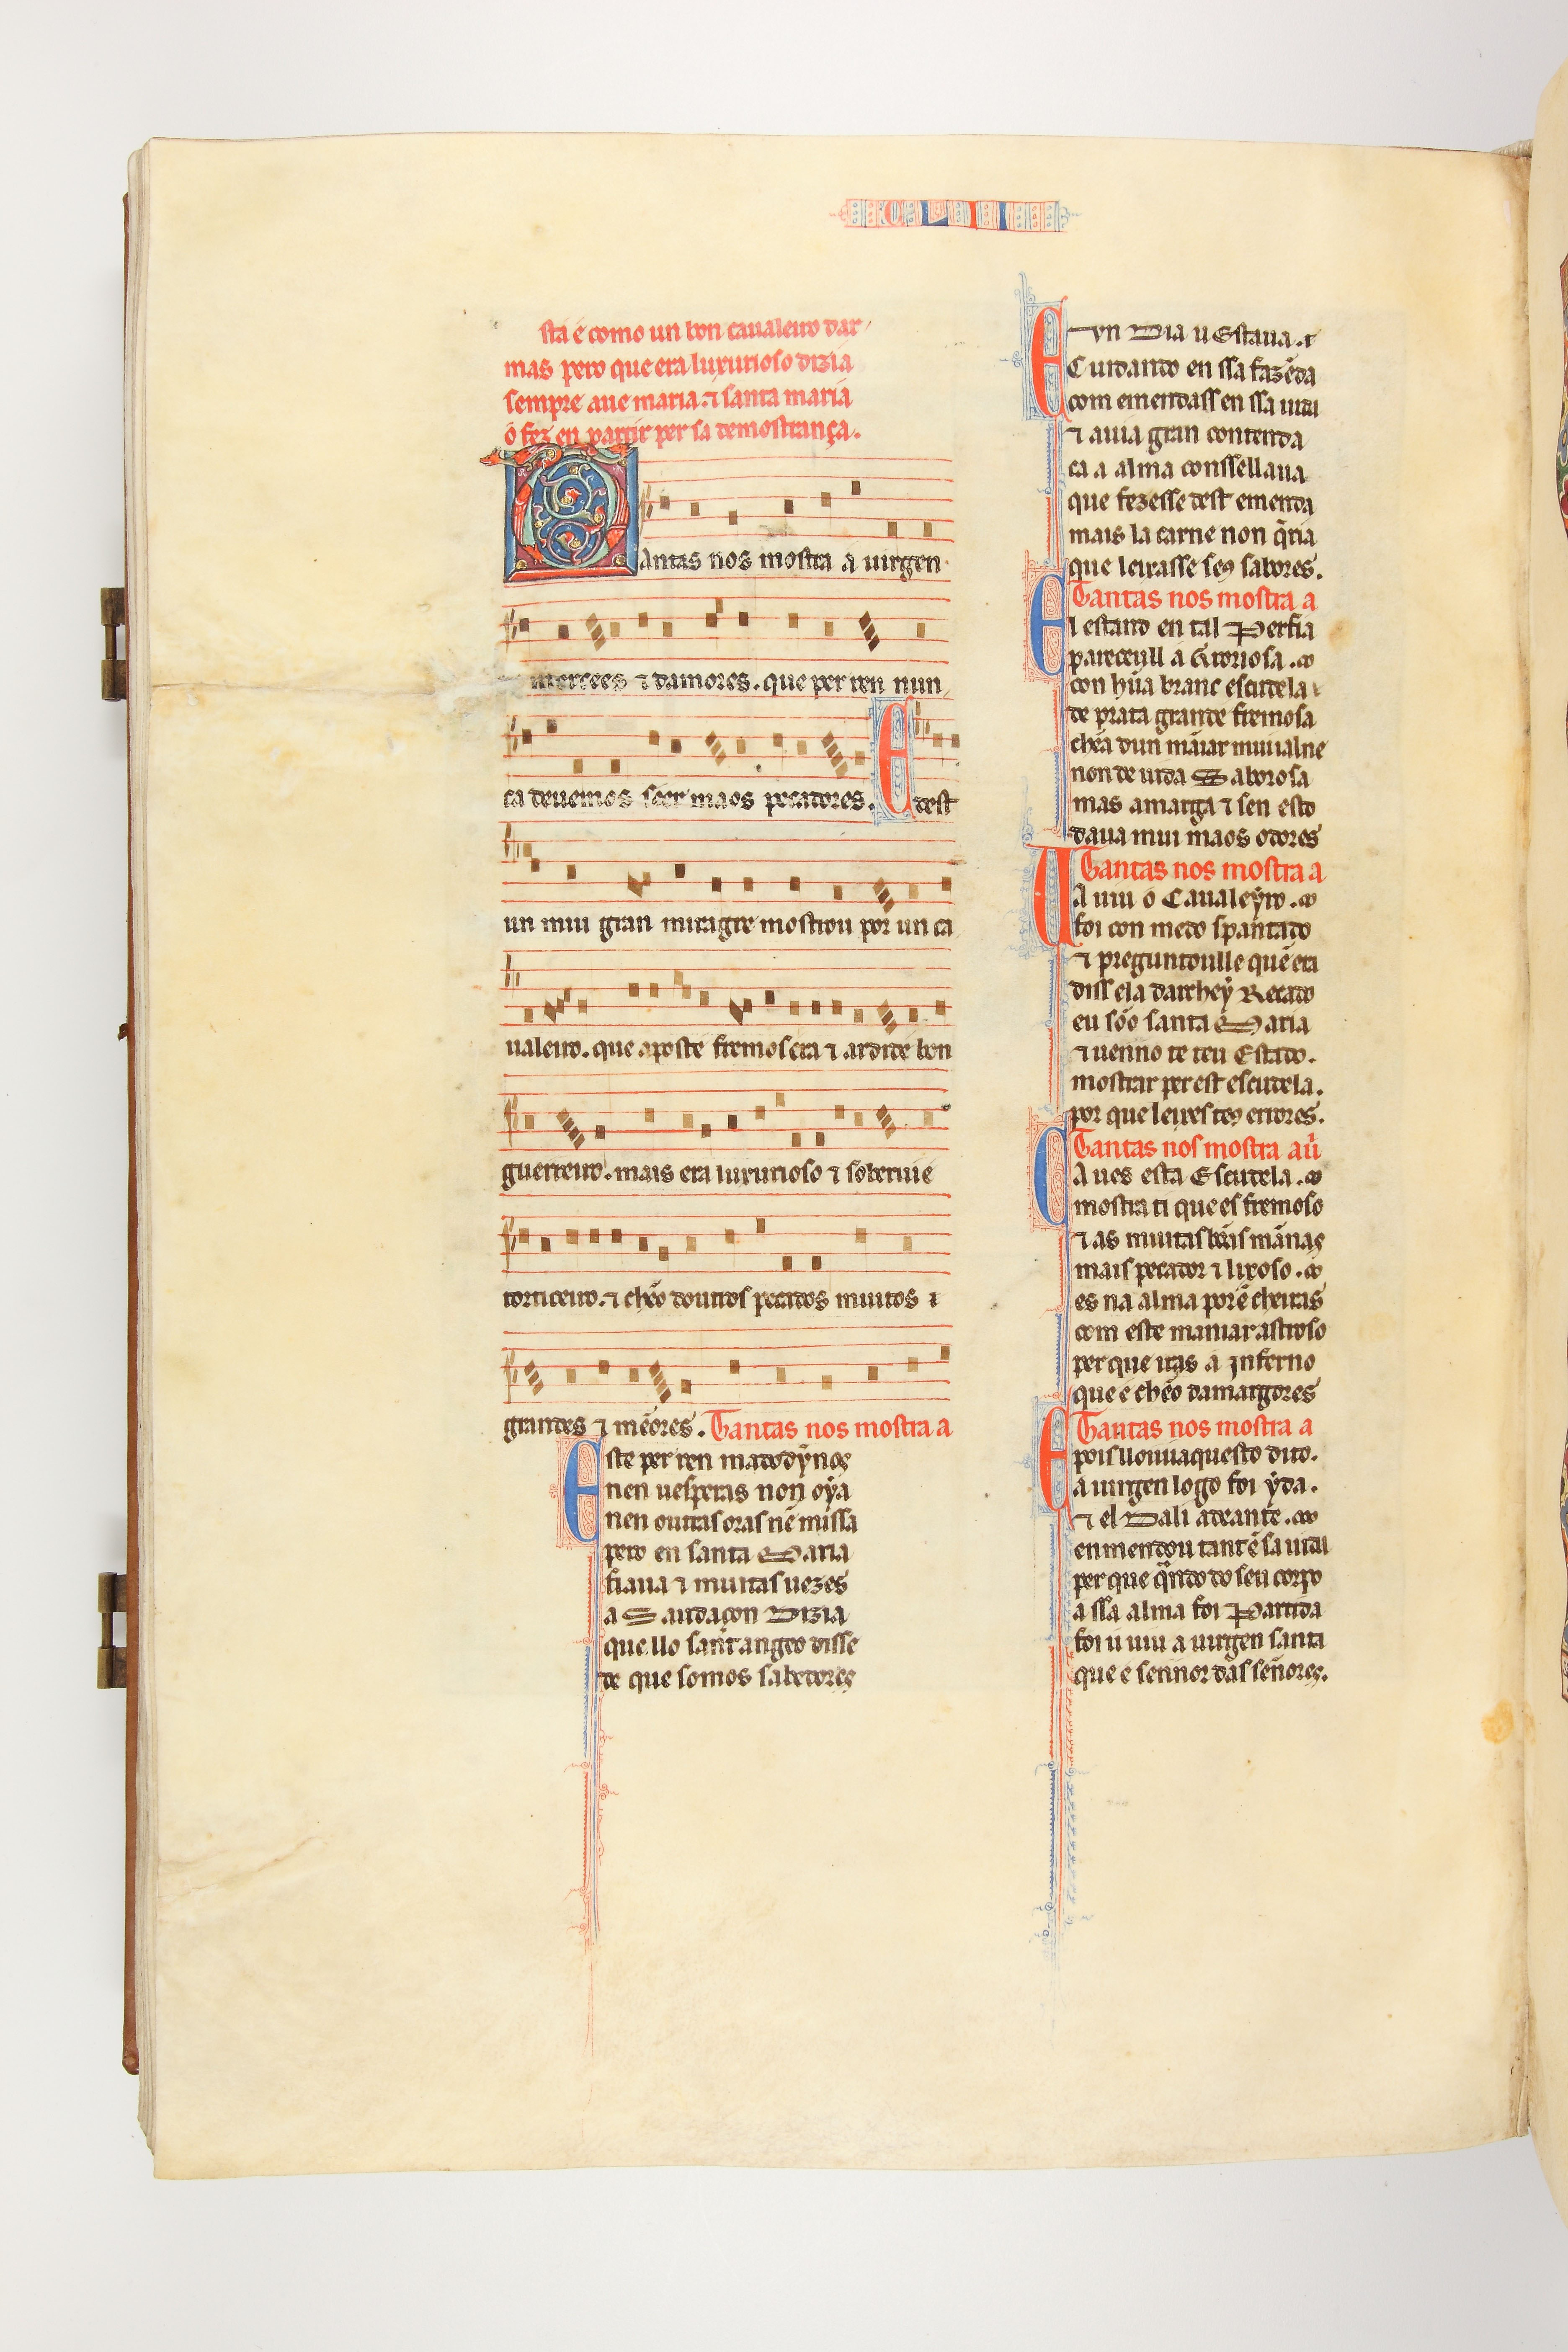 CLII
sta é como un bon caualeiro dar
mas pero que era luxurioso dizia
sempre aue maria. ⁊ santa maria
o fez en partir per sa demostrança.
antas nos mostra a uirgen
mercees ⁊ damores. que per ren nun
ca deuemos seer maos pecadores. E dest
un mui gran miragre mostrou por un ca
ualeiro. que aposte fremos era ⁊ ardid e bon
guerreiro. mais era luxurioso ⁊ soberuie
torticeiro. ⁊ chẽo doutros pecados muitos ⁊
grandes ⁊ mẽores. Tantas nos mostra a
Este per ren madodỹnos
nen uesperas non oýa
nen outras oras nẽ missa
pero en santa Maria
fiaua ⁊ muitas uezes
a Saudaçon Dizia
que llo sant angeo disse
de que somos sabedores
E vn Dia u Estaua. ⁊
Cuidando en ssa fazẽda
com emendass en ssa uida
⁊ auia gran contenda
ca a alma conssellaua
que fezesse dest emenda
mais la carne non q̃ria
que leixasse seus sabores.
Tantas nos mostra a
El estand en tal Perfia
pareceull a Groriosa.
con hũa branc escudela
de prata grande fremosa
chẽa dun mãiar mui ialne
non de uida Saborosa
mas amarga ⁊ sen esto
daua mui maos odores
Tantas nos mostra a
Qua uiu o Caualeýro.
foi con medo spantado
⁊ preguntoulle quẽ era
diss ela darchey Recado
eu sõo santa Maria
⁊ uenno te teu Estado.
mostrar per est escudela.
por que leixes teus errores.
Tantas nos mostra a ũ
Ca ues esta Escudela.
mostra ti que es fremoso
⁊ as muitas bõas mãnas
mais pecador ⁊ lixoso.
es na alma porẽ cheiras
com este maniar astroso
per que iras a jnferno
que é chẽo damargores
Tantas nos mostra a
E pois ll ouuaquesto dito.
a uirgen logo foi ýda.
⁊ el Dali adeante.
enmendou tant ẽ sa uida
per que q̃ndo do seu corpo
a ssa alma foi Partida
foi u uiu a uirgen santa
que é sennor das sẽnores.